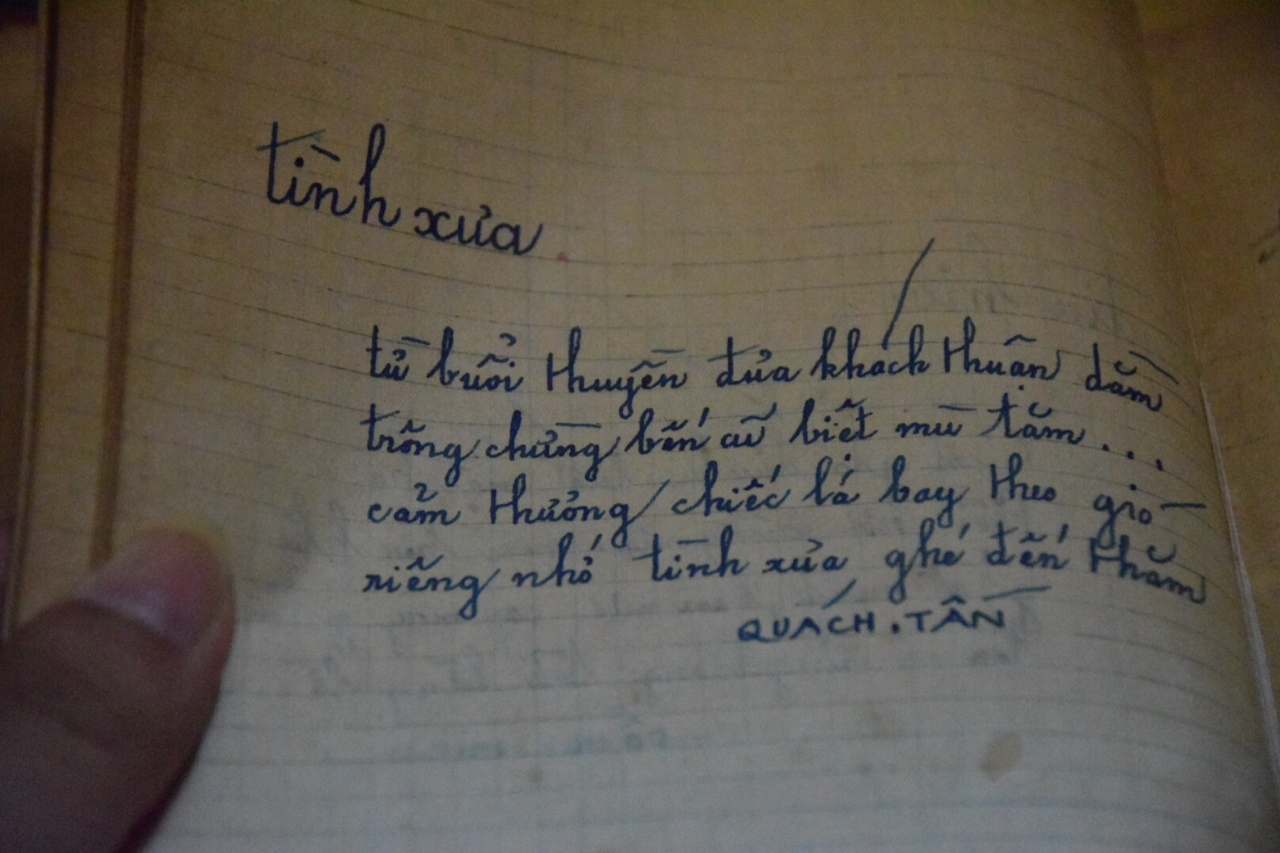 tình xưa
từ buổi thuyền đưa khách thuận dằm
trông chừng bến cũ biệt mù tăm...
cảm thương chiếc lá bay theo gió
riêng nhớ tình xưa ghé đến thăm
QUÁCH.TẤN